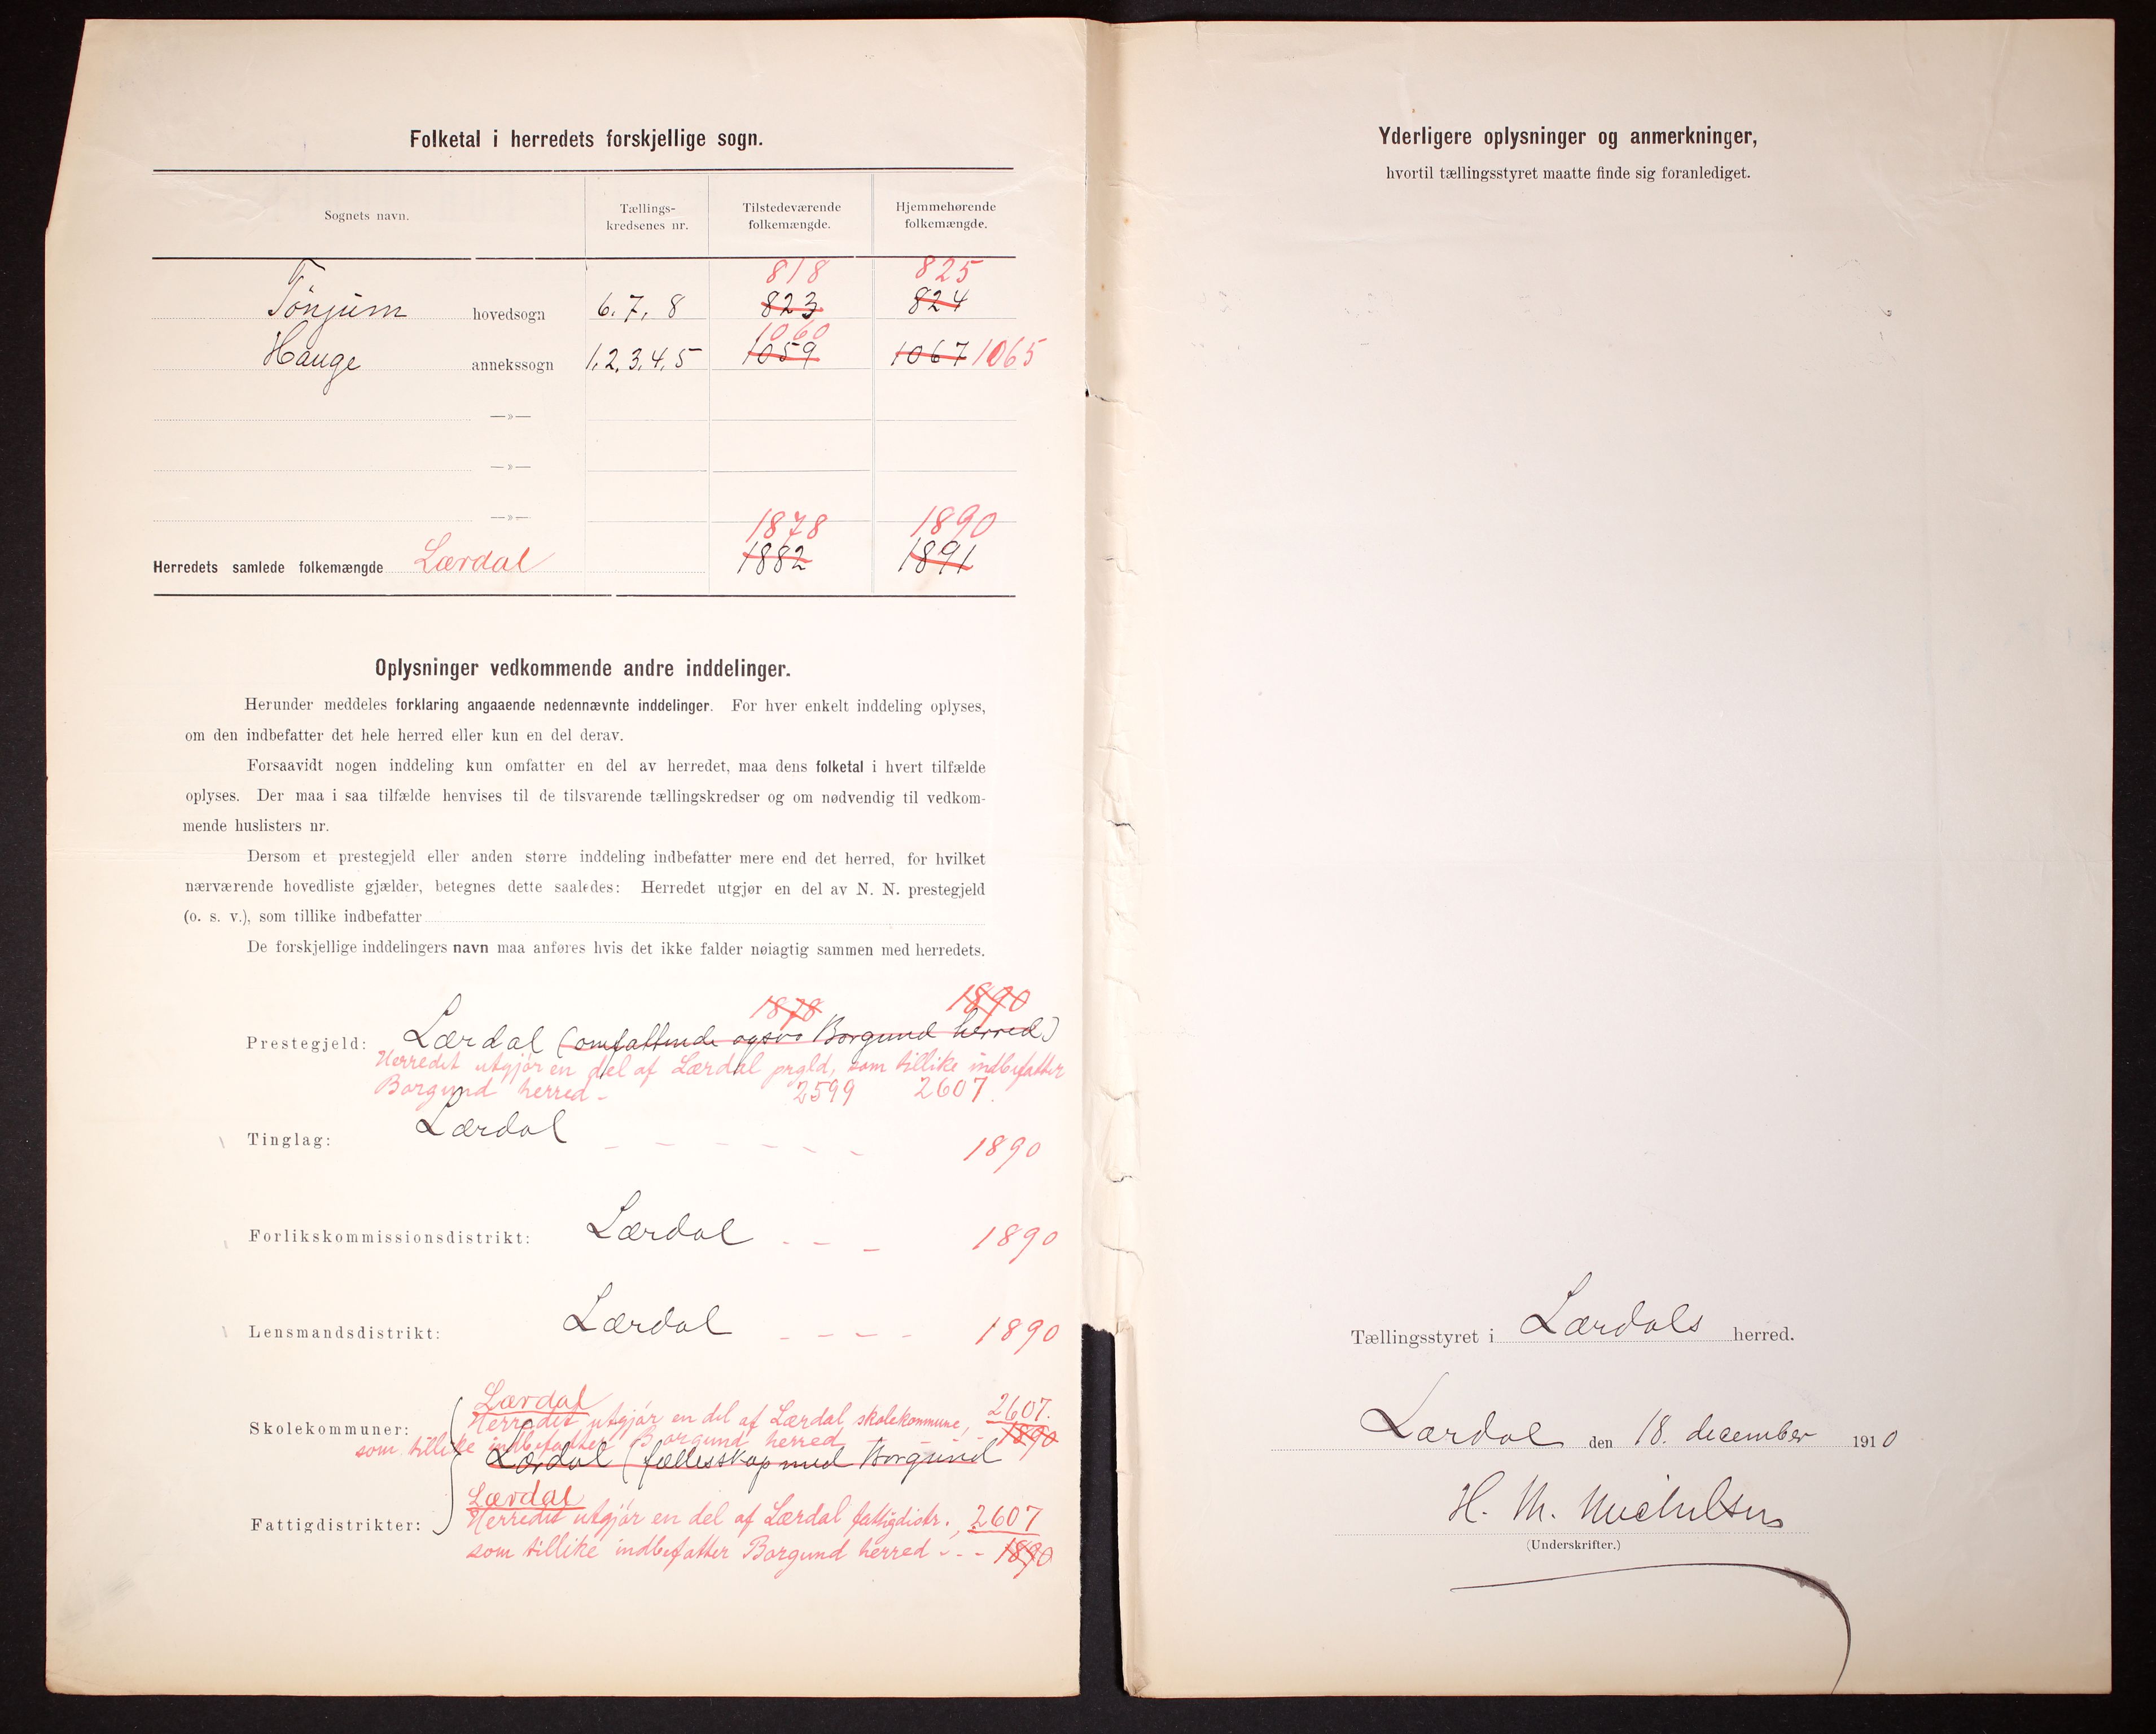 Folketal i herredets forskjellige sogn.
Sognets navn. Tællings- kredsenes nr. Tilstedeværende folkemængde. Hjemmehørende folkemængde.
818 825
Tönjum hovedsogn 6. 7, 8 823 824
1060
Hauge annekssogn 1, 2, 3, 4, 5 1059 1067 1065
—»—
—»—
—»—
1878 1890
Herredets samlede folkemængde Lærdal 1882 1891
Oplysninger vedkommende andre inddelinger.
Herunder meddeles forklaring angaaende nedennævnte inddelinger. For hver enkelt inddeling oplyses,
om den indbefatter det hele herred eller kun en del derav.
Forsaavidt nogen inddeling kun omfatter en del av herredet, maa dens folketal i hvert tilfælde
oplyses. Der maa i saa tilfælde henvises til de tilsvarende tællingskredser og om nødvendig til vedkom-
mende huslisters nr.
Dersom et prestegjeld eller anden større inddeling indbefatter mere end det herred, for hvilket
nærværende hovedliste gjælder, betegnes dette saaledes: Herredet utgjør en del av N. N. prestegjeld
(o. s. v.), som tillike indbefatter
De forskjellige inddelingers navn maa anføres hvis det ikke falder nøiagtig sammen med herredets.
1878 1890
Prestegjeld: Lærdal (omfattende ogsaa Borgund herred)
Herredet utgjör en del af Lærdal prgld, som tillike indbefatter
Borgund herred - 2599 2607.
Tinglag: Lærdal - - - - - - 1890
Forlikskommissionsdistrikt: Lærdal - - - 1890
Lensmandsdistrikt: Lærdal - - - - 1890
Lærdal
Skolekommuner: Herredet utgjör en del af Lærdal skolekommune, 2607.
som tillike indbefatter Borgund herred - - - 1890
Lærdal (fællesskap med Borgund
Lærdal
Fattigdistrikter: Herredet utgjör en del af Lærdal fattigdistr., 2607
som tillike indbefatter Borgund herred - - - 1890
Yderligere oplysninger og anmerkninger,
hvortil tællingsstyret maatte finde sig foranlediget.
Tællingsstyret i Lærdals herred.
Lærdal den 18. december 1910
H. M.
(Underskrifter.)